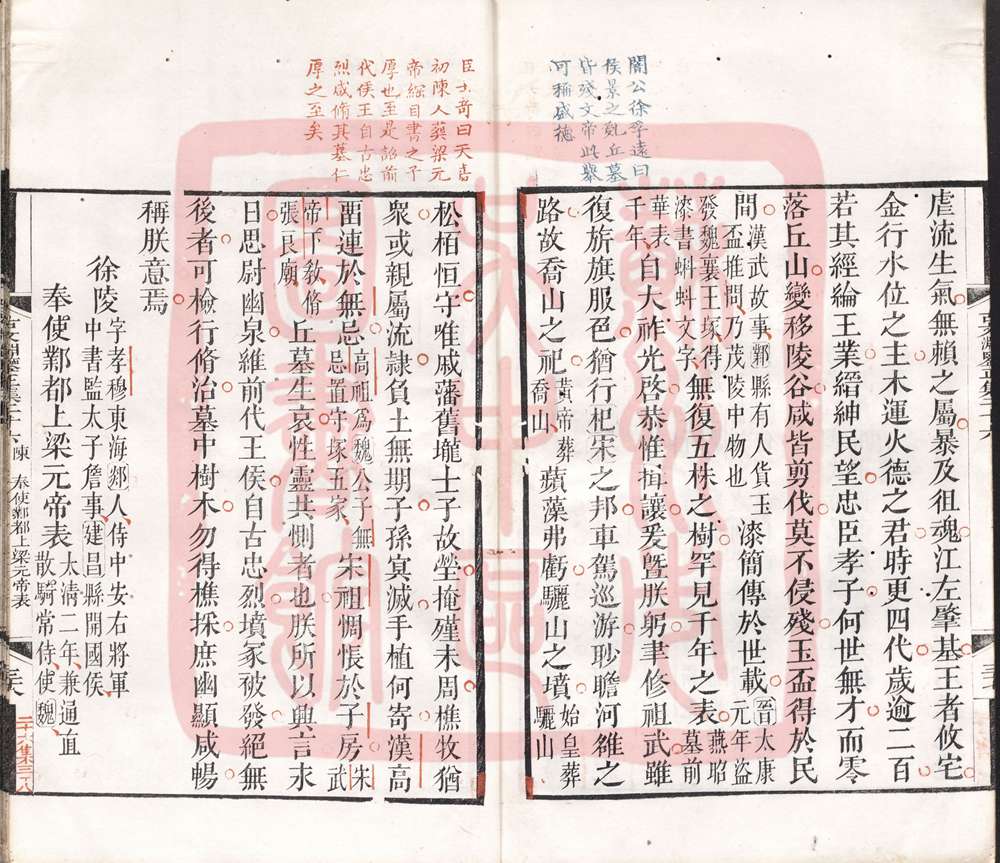 闇公徐孚遠曰
侯景之亂丘墓
皆殘文帝此舉
可稱盛德
虐流生氣無賴之屬暴及徂魂江左肇基王者攸宅
金行水位之主木運火德之君時更四代歲逾二百
若其經綸王業縉紳民望忠臣孝子何世無才而零
落丘山變移陵谷咸皆剪伐莫不侵殘玉盃得於民
間漢武故事鄠縣有人貨玉盃推問乃茂陵中物也漆簡傳於世載晉太康元年盜
發魏襄王塚得漆書蝌蚪文字無復五株之樹罕見千年之表燕昭墓前
華表千年自大祚光啓恭惟揖讓爰曁朕躬聿修祖武雖
復旂旗服色猶行杞宋之邦車駕巡游眇瞻河雒之
路故喬山之祀黃帝葬喬山蘋藻弗虧驪山之墳始皇葬驪山
臣士奇曰天嘉
初陳人葬梁元
帝綱目書之予
厚也至是詔前
代侯王自古忠
烈咸脩其墓仁
厚之至矣
松柏恒守唯戚藩舊壠士子故塋掩殣未周樵牧猶
衆或親屬流隷負土無期子孫冥滅手植何寄漢高
畱連於無忌高祖爲魏公子無忌置守塚五家宋祖惆悵於子房朱武
帝下敎脩張良廟丘墓生哀性靈共惻者也朕所以興言永
日思慰幽泉維前代王侯自古忠烈墳冢被發絕無
後者可檢行脩治墓中樹木勿得樵採庶幽顯咸暢
稱朕意焉
徐陵字孝穆東海郯人侍中安右將軍中書監太子詹事建昌縣開國侯
奉使鄴都上梁元帝表太清二年兼通直散騎常侍使魏
陳 奉使鄴都上梁元帝表